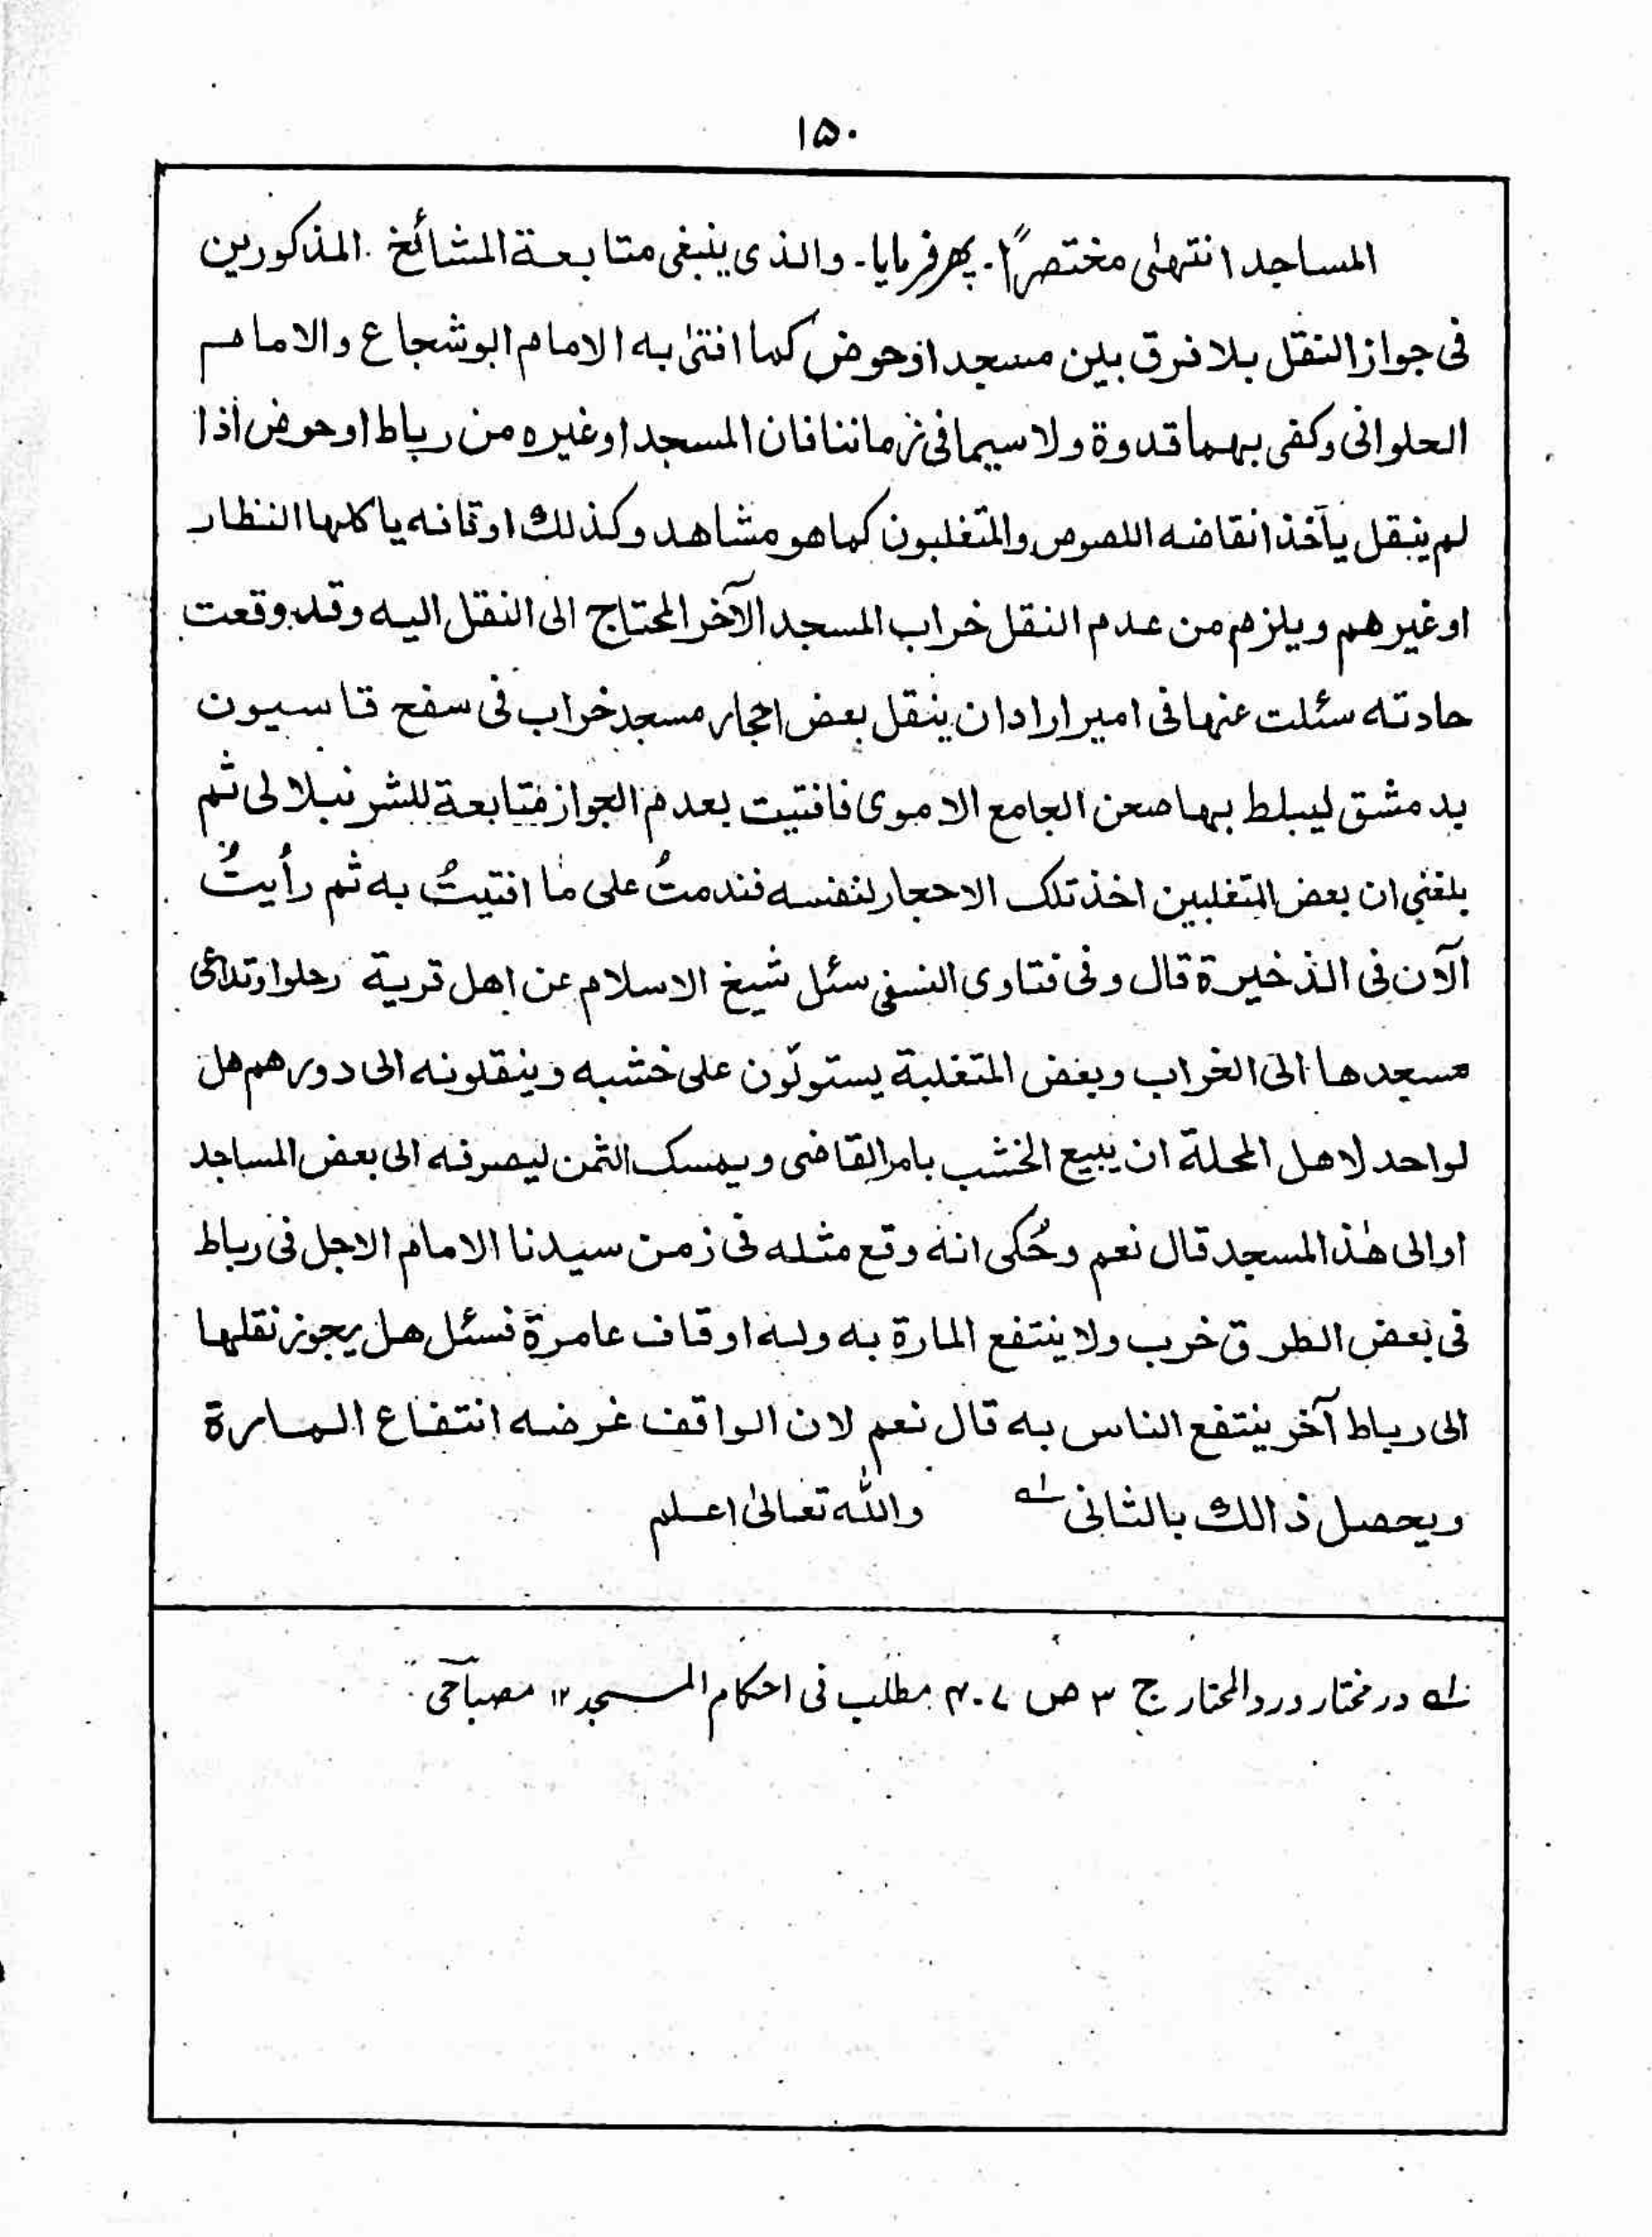 ۱۵۰
المساجد انتهٰی مختصراً۔ پھر فرمایا۔ والذی ینبغی متابعة المشائخ المذکورین
فی جواز النقل بلا فرق بین مسجد او حوض کما افتیٰ به الامام ابو شجاع والامام
الحلوانی وکفی بهما قدوة ولا سیما فی زماننا فان المسجد او غیره من رباط او حوض اذا
لم ینقل یأخذ انقاضه اللصوص والمتغلبون کما هو مشاهد وکذلك اوقافه یاکلها النظار
او غیرهم ویلزم من عدم النقل خراب المسجد الآخر المحتاج الی النقل الیه وقد وقعت
حادثه سئلت عنها فی امیر اراد ان ینقل بعض احجار مسجد خراب فی سفح قاسیون
بدمشق لیبلط بها صحن الجامع الاموی فافتیت بعدم الجواز متابعة للشرنبلالی ثم
بلغنی ان بعض المتغلبین اخذ تلک الاحجار لنفسه فندمتُ علی ما افتیتُ به ثم رأیتُ
الآن فی الذخیرة قال وفی فتاوی النسفی سئل شیخ الاسلام عن اهل قریة رحلوا وتداعی
مسجدها الی الخراب وبعض المتغلبة یستولّون علی خشبه وینقلونه الی دورهم هل
لواحد لاهل المحلة ان یبیع الخشب بامر القاضی ویمسک الثمن لیصرفه الی بعض المساجد
او الی هٰذا المسجد قال نعم وحُکی انه وقع مثله فی زمن سیدنا الامام الاجل فی رباط
فی بعض الطرق خرب ولا ینتفع المارة به وله اوقاف عامرة فسئل هل یجوز نقلها
الی رباط آخر ینتفع الناس به قال نعم لان الواقف غرضه انتفاع المارة
ویحصل ذالك بالثانی لہ واللّٰه تعالیٰ اعلم
لہ در مختار ورد المحتار ج ۳ ص ۴۰۷ مطلب فی احکام المسجد ۱۲ مصباحی